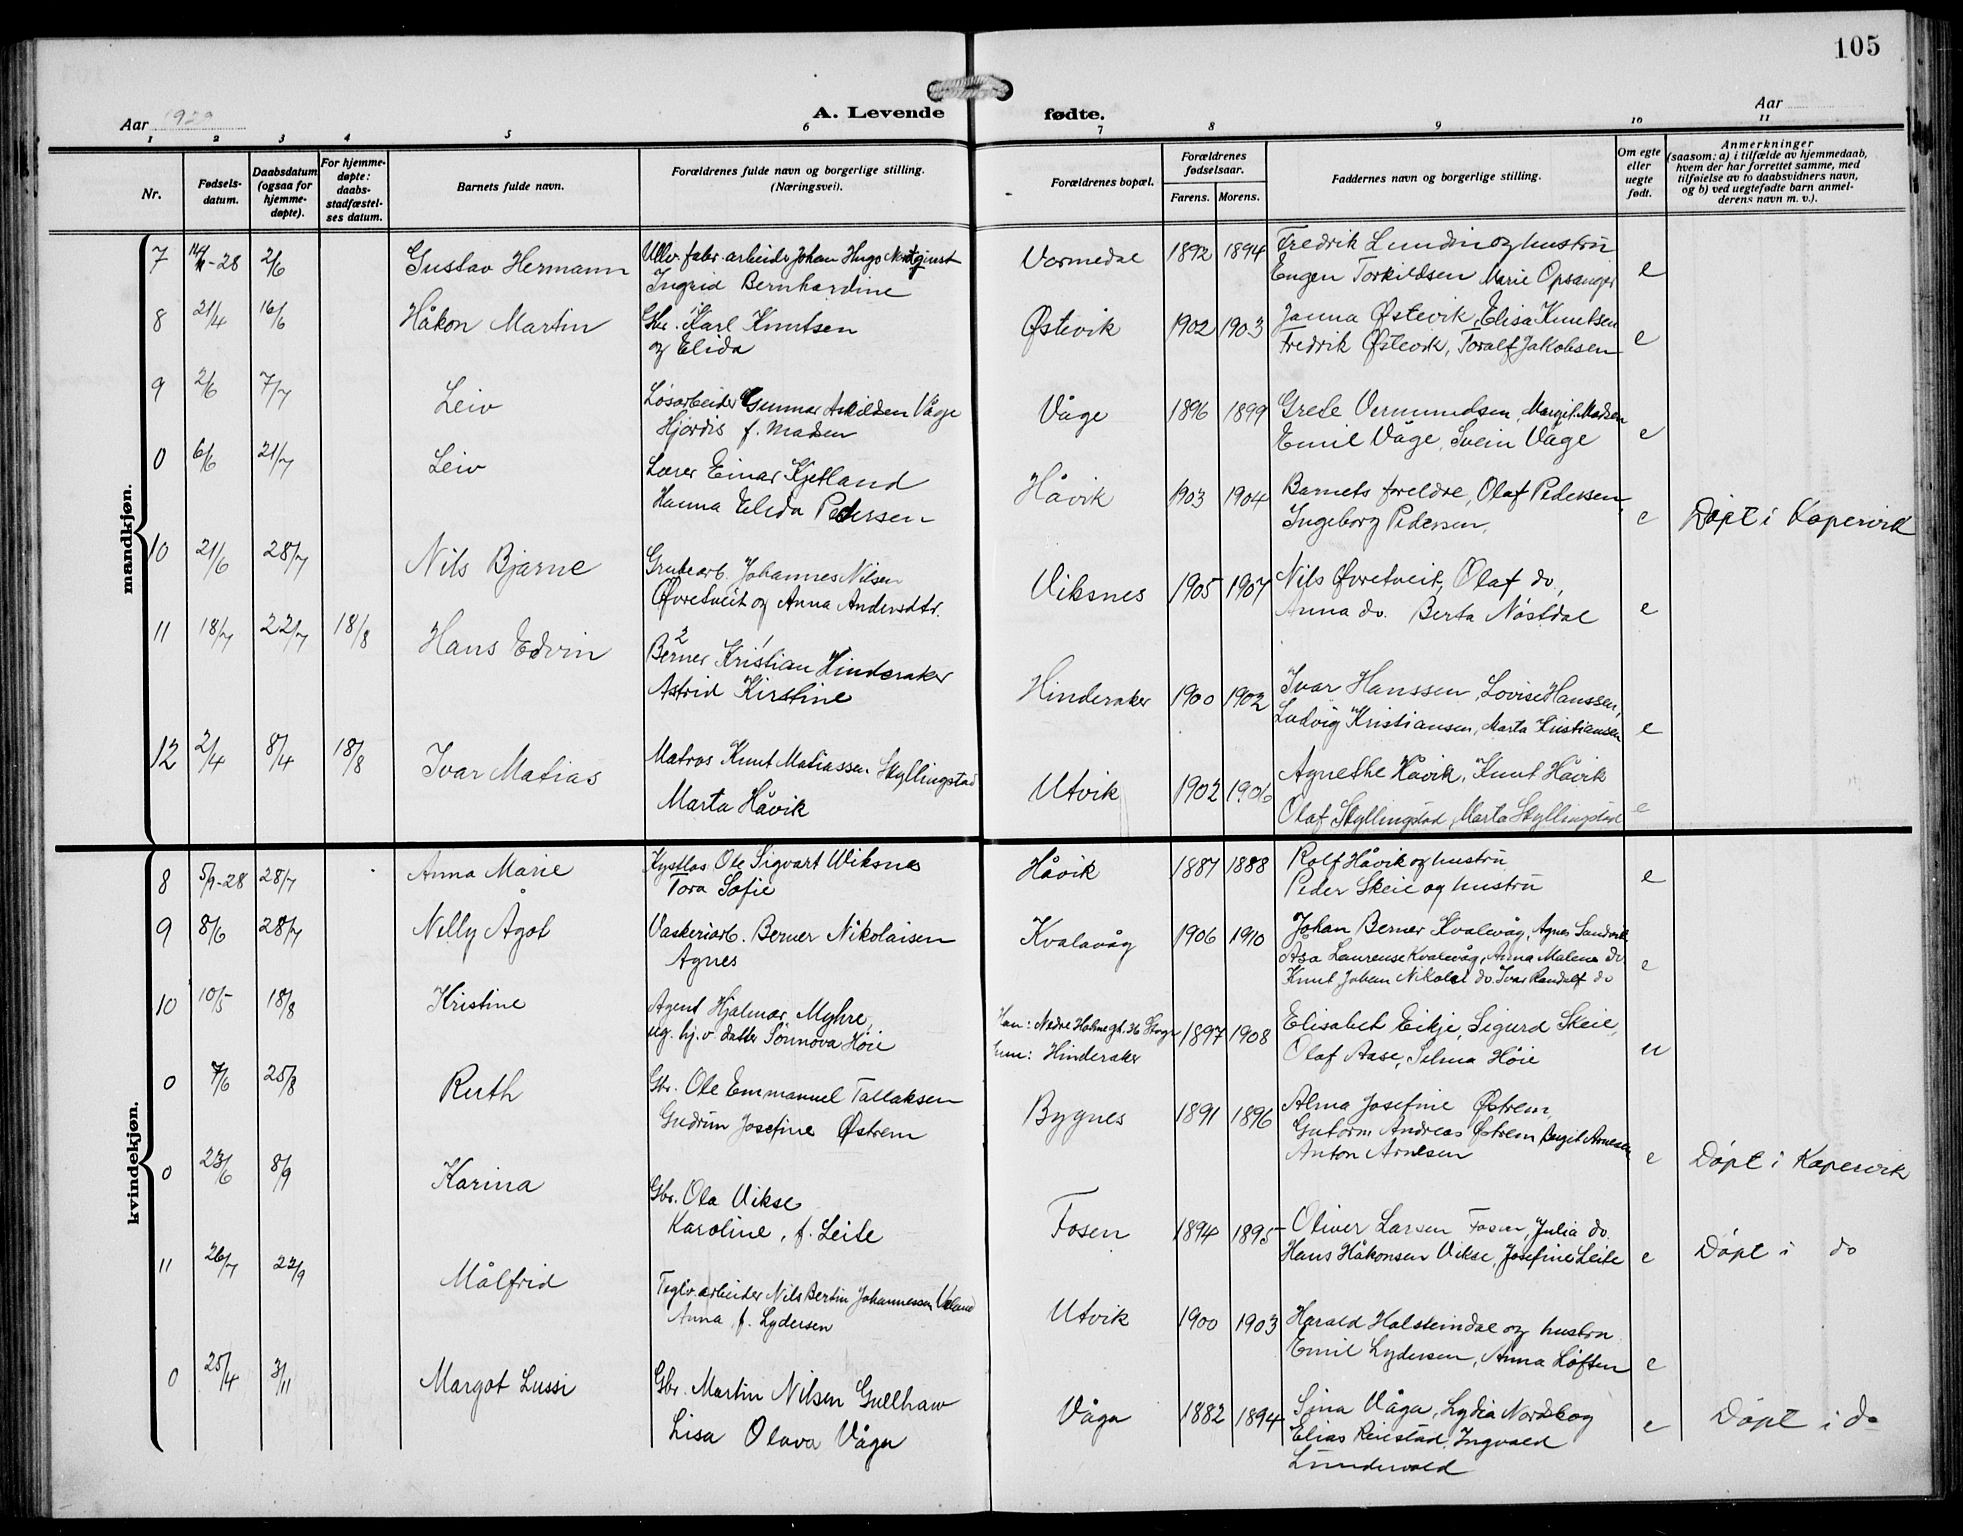 105
Aar 1929
A. Levende fødte.
Aar
1 2 3 4 5 6 7 8 9 10 11
Nr.
Fødsels-
datum.
Daabsdatum
(ogsaa for
hjemme-
døpte).
For hjemme-
døpte:
daabs-
stadfæstel-
ses datum.
Barnets fulde navn.
Forældrenes fulde navn og borgerlige stilling.
(Næringsvei).
Forældrenes bopæl.
Forældrenes
fødselsaar.
Farens. Morens.
Faddernes navn og borgerlige stilling.
Om egte
eller
uegte
født.
Anmerkninger
(saasom: a) i tilfælde av hjemmedaab,
hvem der har forrettet samme, med
tilføielse av to daabsvidners navn,
og b) ved uegtefødte barn anmel-
derens navn m. v.).
mandkjøn.
7 -28 2/6 Gustav Hermann Ulv. fabr. arbeider Johan Hugo Nordqvist Vormedal 1892 1894 Fredrik Lundin og hustru e
Ingrid Bernhardine Eugen Torkildsen Marie Opsanger
8 21/4 16/6 Håkon Martin Gbr. Karl Knutsen Østevik 1902 1903 Janna Østevik, Elisa Knutsen e
og Elida Fredrik Østevik, Toralf Jakobsen
9 2/6 7/7 Leiv Løsarbeider Gunnar Askildsen Våge Våge 1896 1899 Grete Vermundsen, Margit Madsen e
Hjørdis f. Madsen Emil Våge, Svein Våge
0 6/6 21/7 Leiv Lærer Einar Kjetland Håvik 1903 1904 Barnets foreldre, Olaf Pedersen, e Döpt i Kopervik
Hanna Elida Pedersen Ingeborg Pedersen.
10 21/6 28/7 Nils Bjarne Grubearb. Johannes Nilsen Viksnes 1905 1907 Nils Øvretveit, Olaf do, e
Øvretveit og Anna Andersdtr. Anna do. Berta Nöstdal
11 18/7 22/7 18/8 Hans Edvin Berner Kristian Hinderaker Hinderaker 1900 1902 Ivar Hanssen, Lovise Hanssen, e
Astrid Kirstine Ludvig Kristiansen, Marta Kristiansen
12 2/4 8/4 18/8 Ivar Matias Matros Knut Matiassen Skyllingstad Utvik 1902 1906 Agnethe Håvik, Knut Håvik e
Marta Håvik Olaf Skyllingstad, Marta Skyllingstad
kvindekjøn.
8 -28 28/7 Anna Marie Kystlos Ole Sigvart Wiksne Håvik 1887 1888 Rolf Håvik og hustru e
Tora Sofie Peder Skeie og hustru
9 8/6 28/7 Nelly Ågot Vaskeriarb. Berner Nikolaisen Kvalavåg 1906 1910 Johan Berner Kvalavåg, Agnes Sandvik e
Agnes Åsa Laurense Kvalevåg, Anna Malene do
Knut Johan Nikolai do. Ivar Randulf do
10 10/5 18/8 Kristine Agent Hjalmar Myhre, Han: Nedre Holmegt. 36 Stvgr 1897 1908 Elisabet Eikje, Sigurd Skeie, u
ug. hj. v. datter Sönnöva Høie Hun: Hinderaker Olaf Aase, Selma Höie
0 7/6 25/8 Ruth Gbr. Ole Emmanuel Tallaksen Bygnes 1891 1896 Alma Josefine Østrem, e Döpt i Kopervik
Gudrun Josefine Østrem Gutorm Andreas Østrem, Bergit Arnesen
Anton Arnesen
0 23/6 8/9 Karina Gbr. Ola Vikse Fosen 1894 1895 Oliver Larsen Fosen, Julia do. e Döpt i do
Karoline, f. Leite Hans Håkonsen Vikse, Josefine Leite
11 26/7 22/9 Målfrid Teglv. arbeider Nils Bertin Johannessen Utvik 1900 1903 Harald Holsteindal og hustru e
Anna f. Lydersen Emil Lydersen, Anna Løften
0 25/4 3/11 Margot Lussi Gbr. Martin Nilsen Gullhaw Våga 1882 1894 Sina Våga, Lydia Nordskog e Döpt i do
Lisa Olava Våga Elias Reiestad, Ingvald
Lundervold